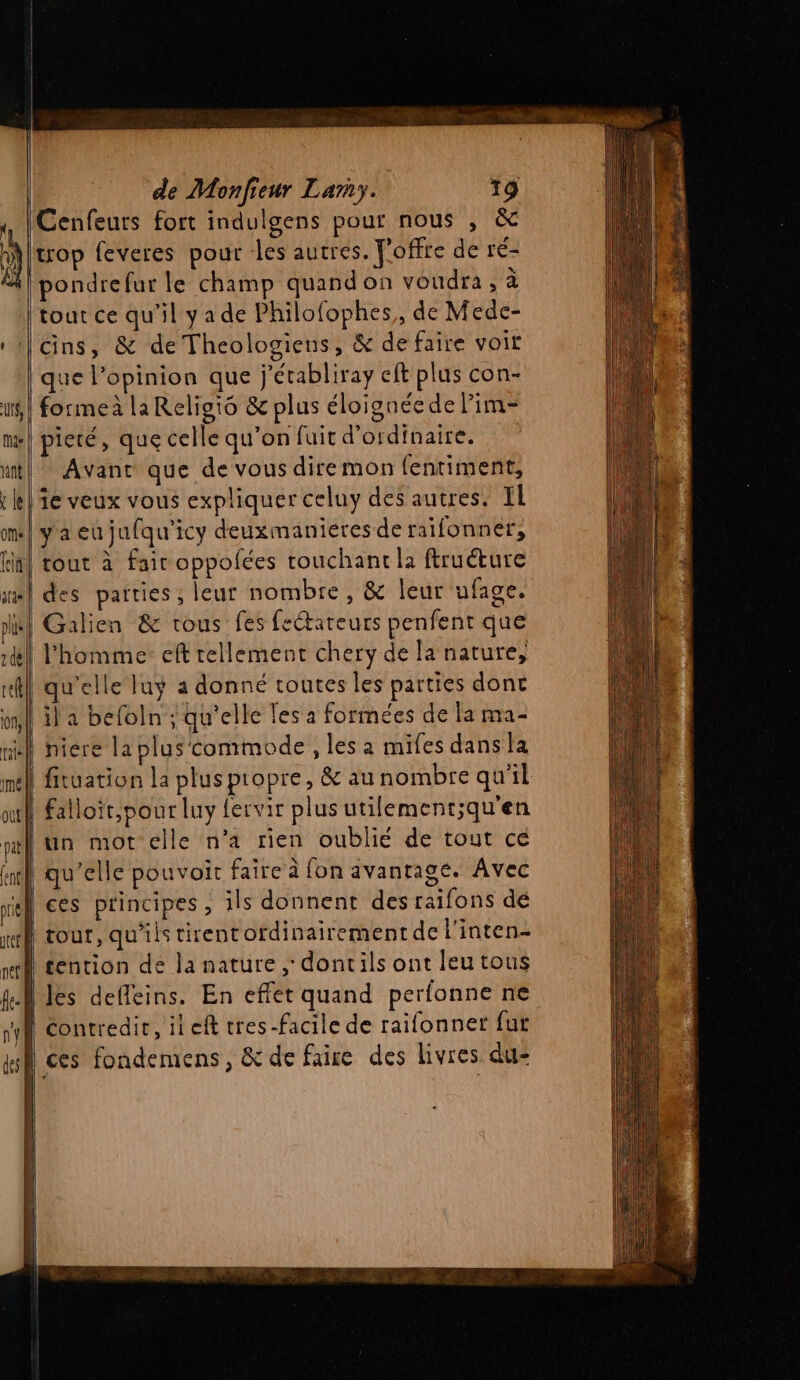 de Monſieur Lamy. 19
Cenſeurs fort indulgens pour nous , &
trop ſeveres pour les autres. J'offre de ré-
pondre ſur le champ quand on voudra , à
tout ce qu'il y a de Philoſophes , de Mede-
cins, & de Theologiens, & de faire voir
que l'opinion que j'établiray eſt plus con-
forme à la Religiō & plus éloignée de l'im-
pieté, que celle qu'on ſuit d'ordinaire.
Avant que de vous dire mon ſentiment,
ie veux vous expliquer celuy des autres. Il
y a eu juſqu'icy deux manieres de raiſonner,
tout à fait oppoſées touchant la ſtructure
des parties , leur nombre , & leur uſage.
Galien & tous ſes ſectateurs penſent que
l'homme eſt tellement chery de la nature,
qu'elle luy a donné toutes les parties dont
il a beſoin ; qu'elle les a formées de la ma-
niere la plus commode , les a miſes dans la
ſituation la plus propre, & au nombre qu'il
falloit, pour luy ſervir plus utilement; qu'en
un mot elle n'a rien oublié de tout ce
qu'elle pouvoit faire à ſon avantage. Avec
ces principes , ils donnent des raiſons de
tout, qu'ils tirent ordinairement de l'inten-
tention de la nature , dont ils ont leu tous
les deſſeins. En effet quand perſonne ne
contredit, il eſt tres-facile de raiſonner ſur
ces fondemens, & de faire des livres du-